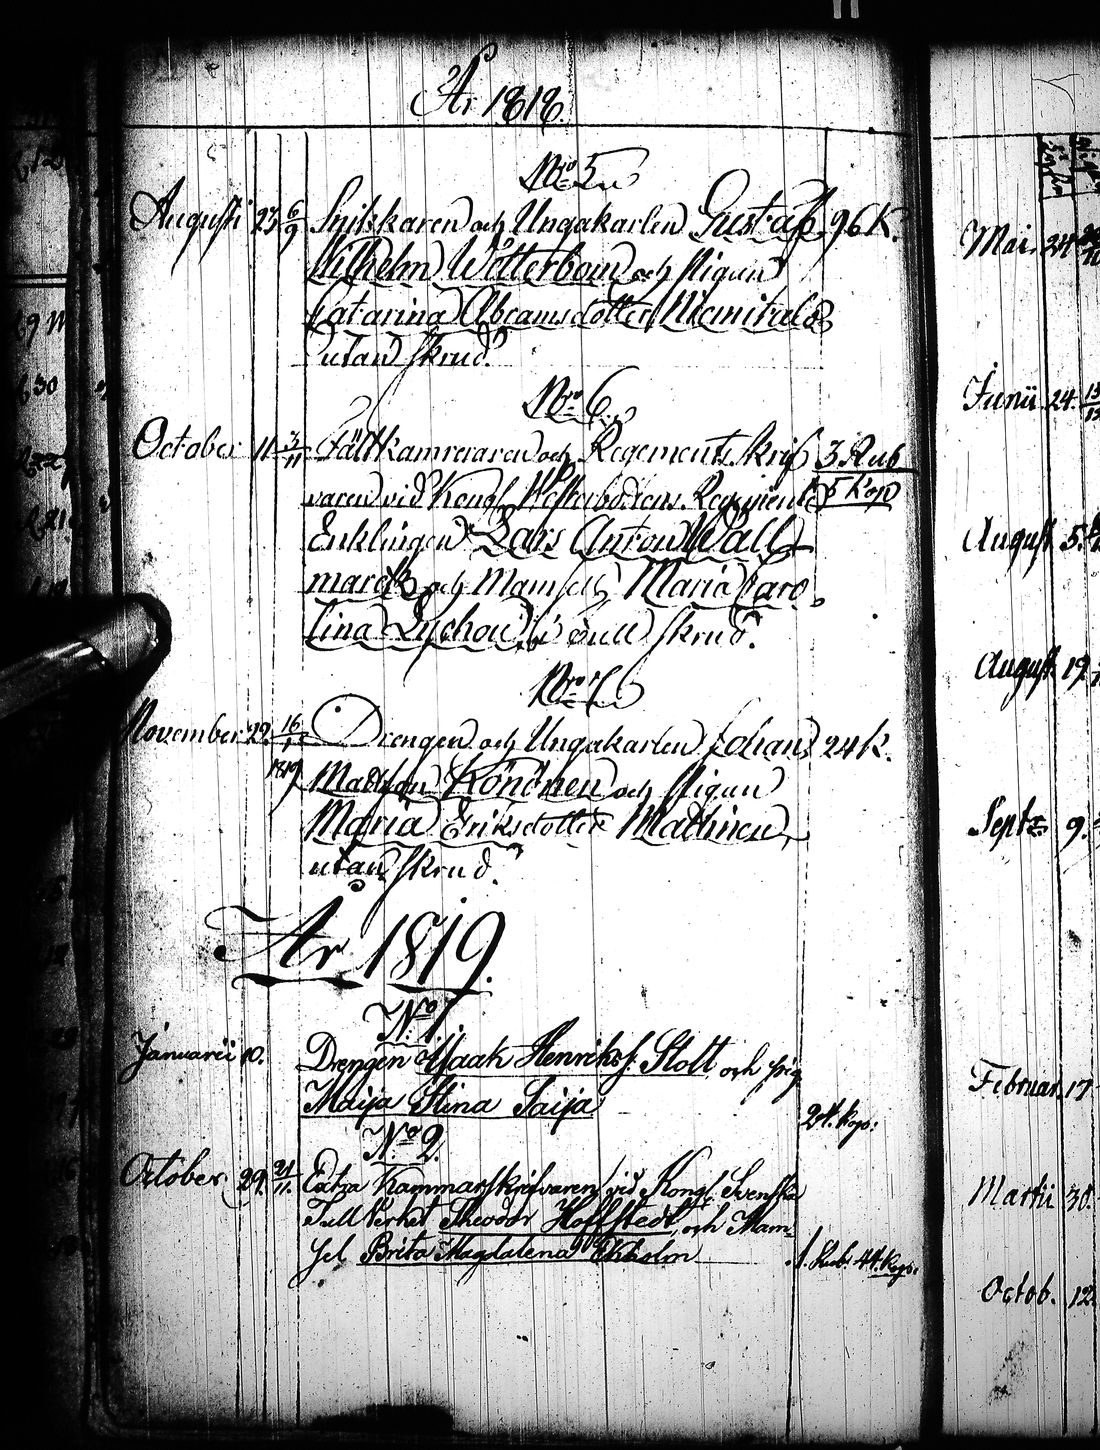 År 1818.
No 5
Augusti 23 6/9 Snikkaren och Ungakarlen Gustaf 96 K.
Wilhelm Wetterbom och Pigan
Catarina Abramsdotter Niemitalo
utan skrud.
No 6
October 11 3/11 Fältkamreraren och Regements skrif 3 Rub
varen vid Kongl. Westerbottens Regimente 5 Kop
Enklingen Lars Anton Wall
marck och Mamsell Maria Caro
lina Lychou, i full skrud.
No 7
November 29. 16/1 Drengen och Ungakarlen Johan 24 K.
1819 Mattson Könönen och Pigan
Maria Eriksdotter Mathinen
utan skrud.
År 1819.
No 1.
Januarii 10. Drengen Isaak Henrikss. Stolt och pig
Maija Stina Saija
24. kop:
No 2.
October 29. 21/11. Extra Kammarskrifvaren vid Kongl. Svenska
Tull Verket Theodor Hoffstedt och Mam-
sel Brita Magdalena Ekholm 1. Rub: 44. kop.
Mai 24
Junii 24.
August 5.
August 19
Sept 9.
Februar. 17
Martii 30.
Octob. 12